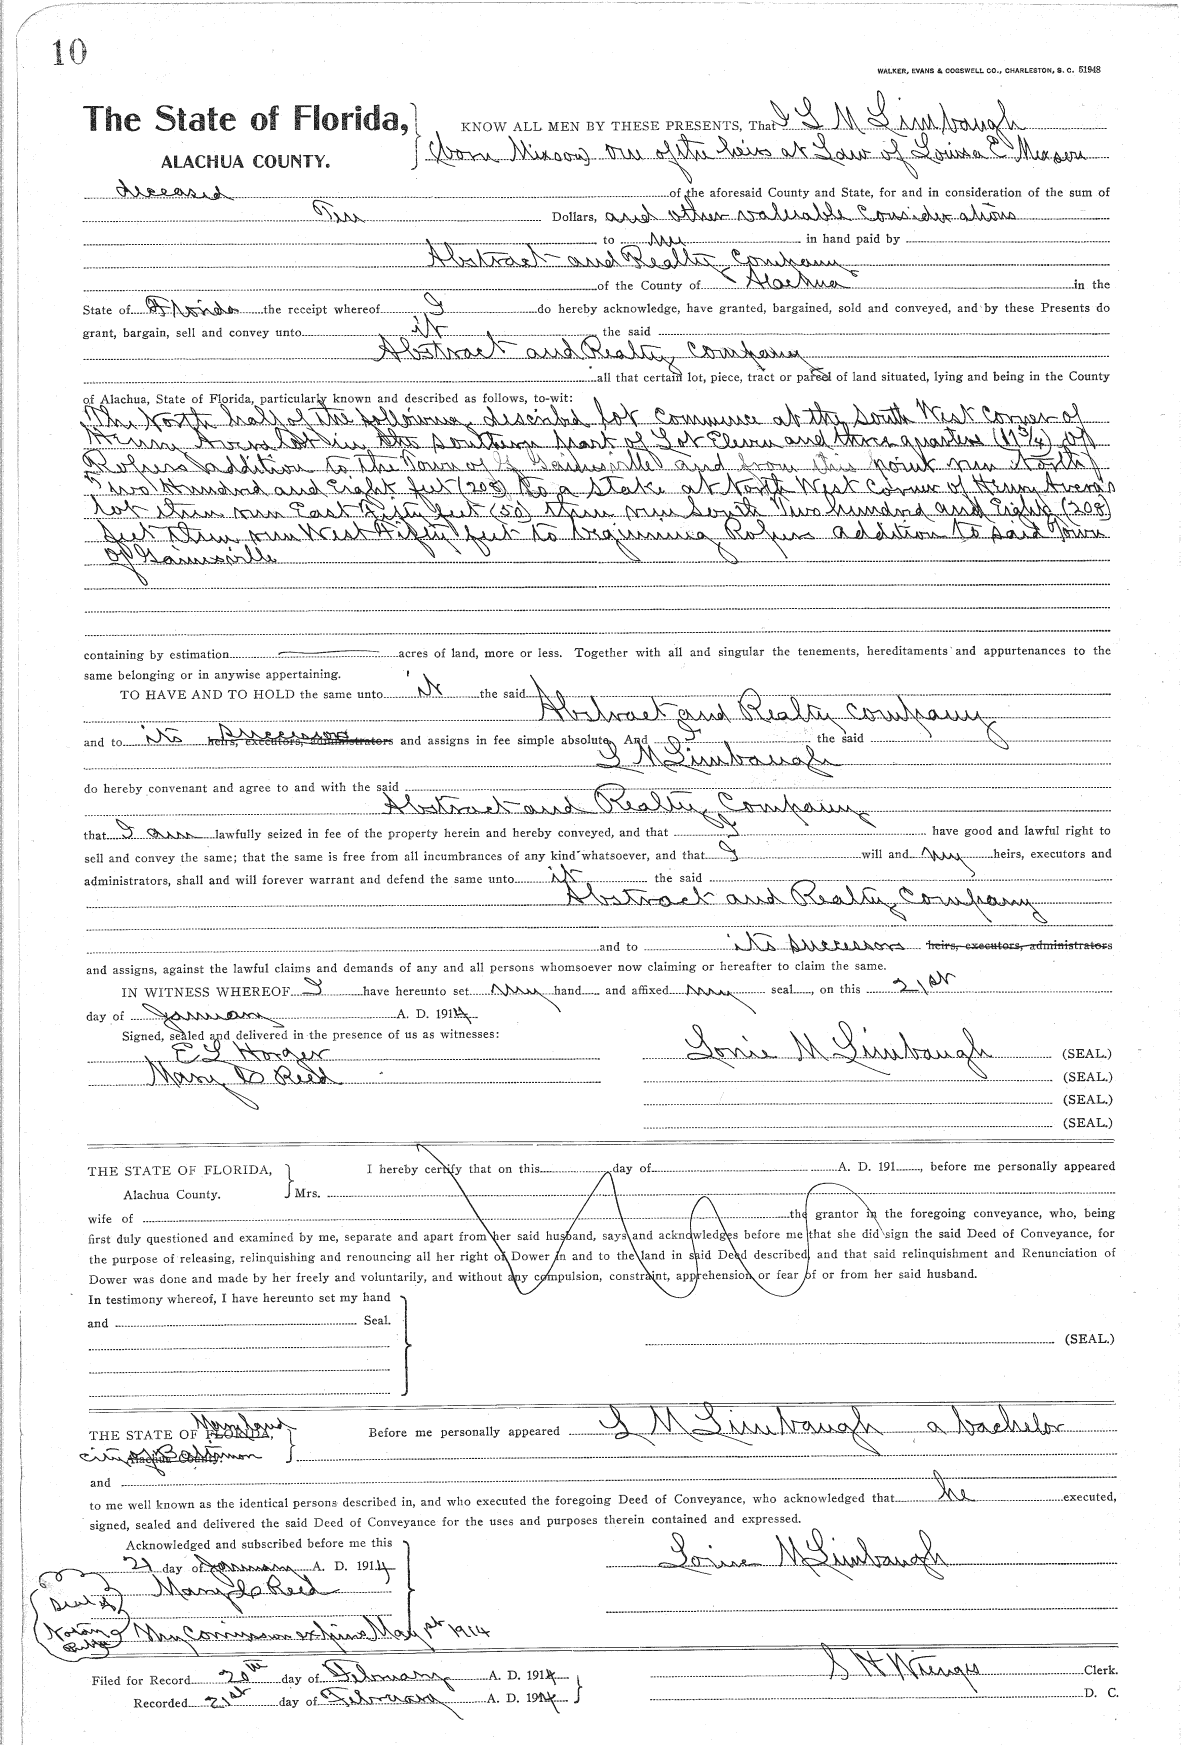 10
WALKER, EVANS & COGSWELL CO., CHARLESTON, S. C. 51948
The State of Florida, KNOW ALL MEN BY THESE PRESENTS, That I L M Limbaugh
ALACHUA COUNTY. (born Mixson) one of the heirs at Law of Louisa E Mixson
deceased of the aforesaid County and State, for and in consideration of the sum of
Ten Dollars, and other valuable considerations
to me in hand paid by
Abstract and Realty Company
of the County of Alachua in the
State of Florida the receipt whereof I do hereby acknowledge, have granted, bargained, sold and conveyed, and by these Presents do
grant, bargain, sell and convey unto it the said
Abstract and Realty Company
all that certain lot, piece, tract or parcel of land situated, lying and being in the County
of Alachua, State of Florida, particularly known and described as follows, to-wit:
The North half of the following described lot commence at the South West Corner of
Henry Averas lot in the southern part of Lot Eleven and three quarters (11¾) of
Ropers addition to the Town of Gainesville and from this point run North
Two Hundred and Eight feet (208) to a stake at North West Corner of Henry Avera's
lot then run East Fifty feet (50) then run South Two hundred and Eight (208)
feet then run West Fifty feet to beginning Ropers addition to said Town
of Gainesville
containing by estimation acres of land, more or less. Together with all and singular the tenements, hereditaments and appurtenances to the
same belonging or in anywise appertaining.
TO HAVE AND TO HOLD the same unto it the said Abstract and Realty Company
and to its successors heirs, executors, administrators and assigns in fee simple absolute. And I the said
L M Limbaugh
do hereby convenant and agree to and with the said
Abstract and Realty Company
that I am lawfully seized in fee of the property herein and hereby conveyed, and that I have good and lawful right to
sell and convey the same; that the same is free from all incumbrances of any kind whatsoever, and that I will and my heirs, executors and
administrators, shall and will forever warrant and defend the same unto it the said
Abstract and Realty Company
and to its successors heirs, executors, administrators
and assigns, against the lawful claims and demands of any and all persons whomsoever now claiming or hereafter to claim the same.
IN WITNESS WHEREOF I have hereunto set my hand and affixed my seal, on this 21st
day of January A. D. 1914
Signed, sealed and delivered in the presence of us as witnesses:
E L Horger Lonie M Limbaugh (SEAL.)
Mary C Reed (SEAL.)
(SEAL.)
(SEAL.)
THE STATE OF FLORIDA, I hereby certify that on this day of A. D. 191, before me personally appeared
Alachua County. Mrs.
wife of the grantor in the foregoing conveyance, who, being
first duly questioned and examined by me, separate and apart from her said husband, says and acknowledges before me that she did sign the said Deed of Conveyance, for
the purpose of releasing, relinquishing and renouncing all her right of Dower in and to the land in said Deed described, and that said relinquishment and Renunciation of
Dower was done and made by her freely and voluntarily, and without any compulsion, constraint, apprehension or fear of or from her said husband.
In testimony whereof, I have hereunto set my hand
and Seal.
(SEAL.)
THE STATE OF FLORIDA, Maryland Before me personally appeared L M Limbaugh a bachelor
City of Baltimon
and
to me well known as the identical persons described in, and who executed the foregoing Deed of Conveyance, who acknowledged that he executed,
signed, sealed and delivered the said Deed of Conveyance for the uses and purposes therein contained and expressed.
Acknowledged and subscribed before me this
21 day of January A. D. 1914 Lonie M Limbaugh
Mary C Reed
Seal of
Notary
Public
My Commission expires May 1st 1914
Filed for Record 20th day of February A. D. 1914 Clerk.
Recorded 21st day of February A. D. 1914 D. C.